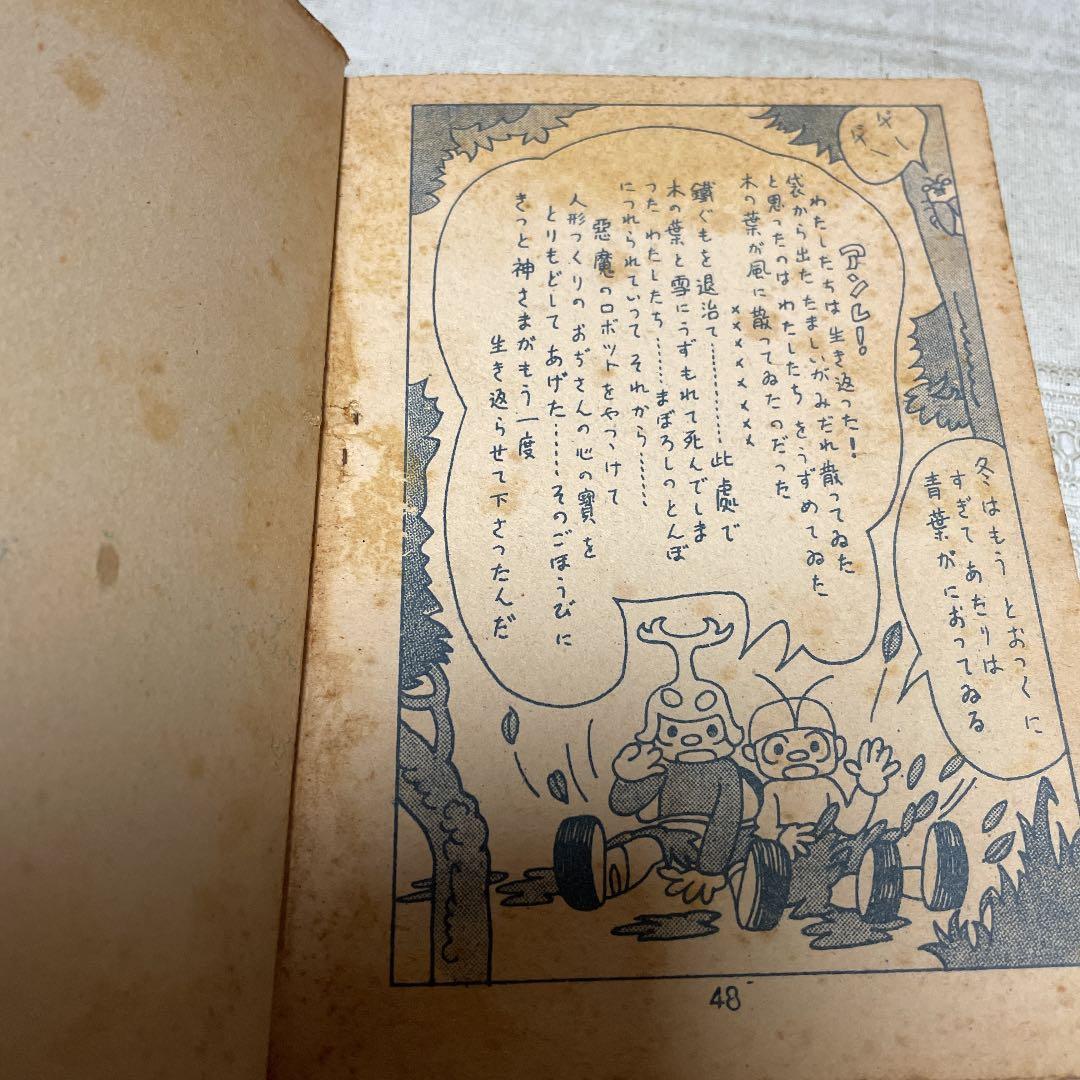 アンレー!
わたしたちは 生き返った!
袋から出た たましいがみだれ散ってゐた
と思ったのは わたしたち をうずめてゐた
木の葉が風に散ってゐたのだった
××××××
鐵ぐもを退治て………此處で
木の葉と雪にうずもれて死んでしま
った わたしたち……まぼろしのとんぼ
につれられていって それから………
惡魔のロボットをやっつけて
人形つくりの おぢさんの心の寶を
とりもどして あげた……そのごほうびに
きっと神さまがもう一度
生き返らせて下さったんだ
冬はもう とおっくに
すぎて あたりは
青葉がにおってゐる
48